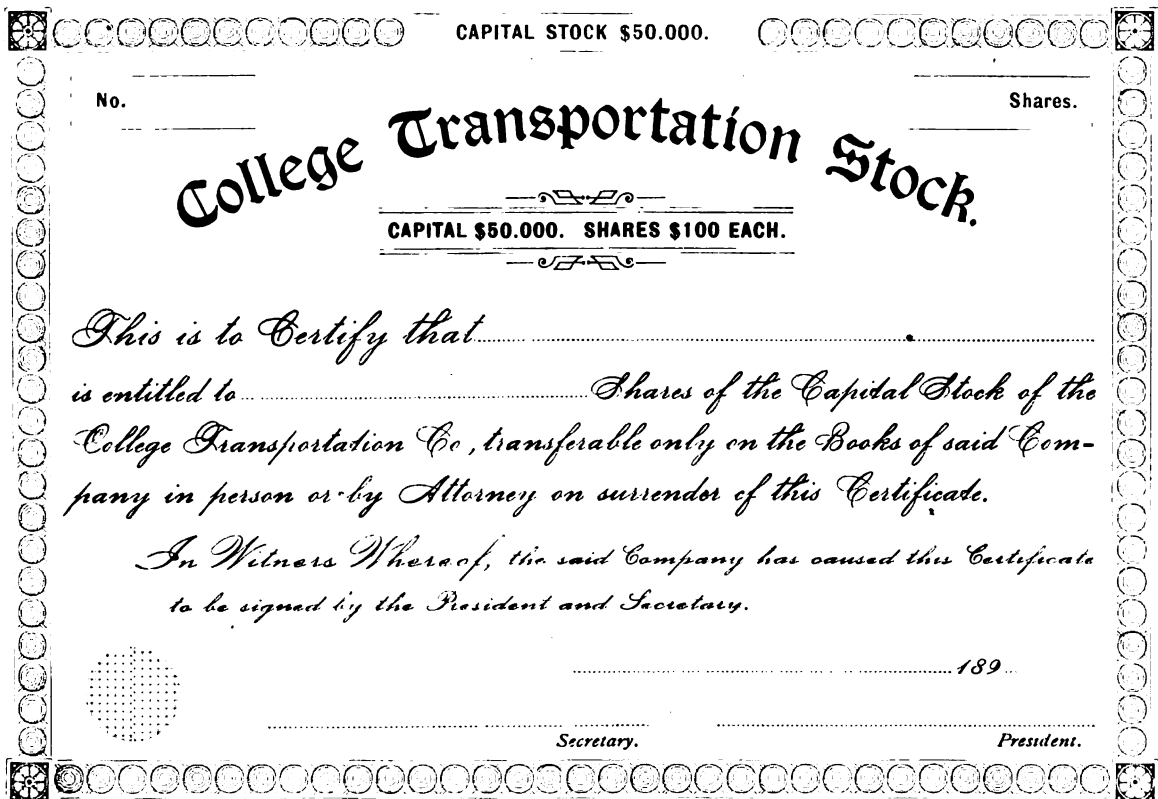 CAPITAL STOCK $50.000.
No.
Shares.
College Transportation Stock.
CAPITAL $50.000. SHARES $100 EACH.
This is to Certify that
is entitled to Shares of the Capital Stock of the
College Transportation Co, transferable only on the Books of said Com-
pany in person or by Attorney on surrender of this Certificate.
In Witness Whereof, the said Company has caused this Certificate
to be signed by the President and Secretary.
189
Secretary.
President.